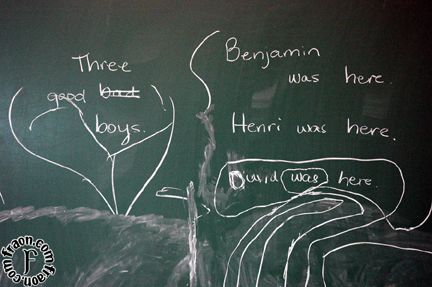 Three
good Bad
boys.
Benjamin
was here.
Henri was here.
David was here.
fraon.com fraon.com
F